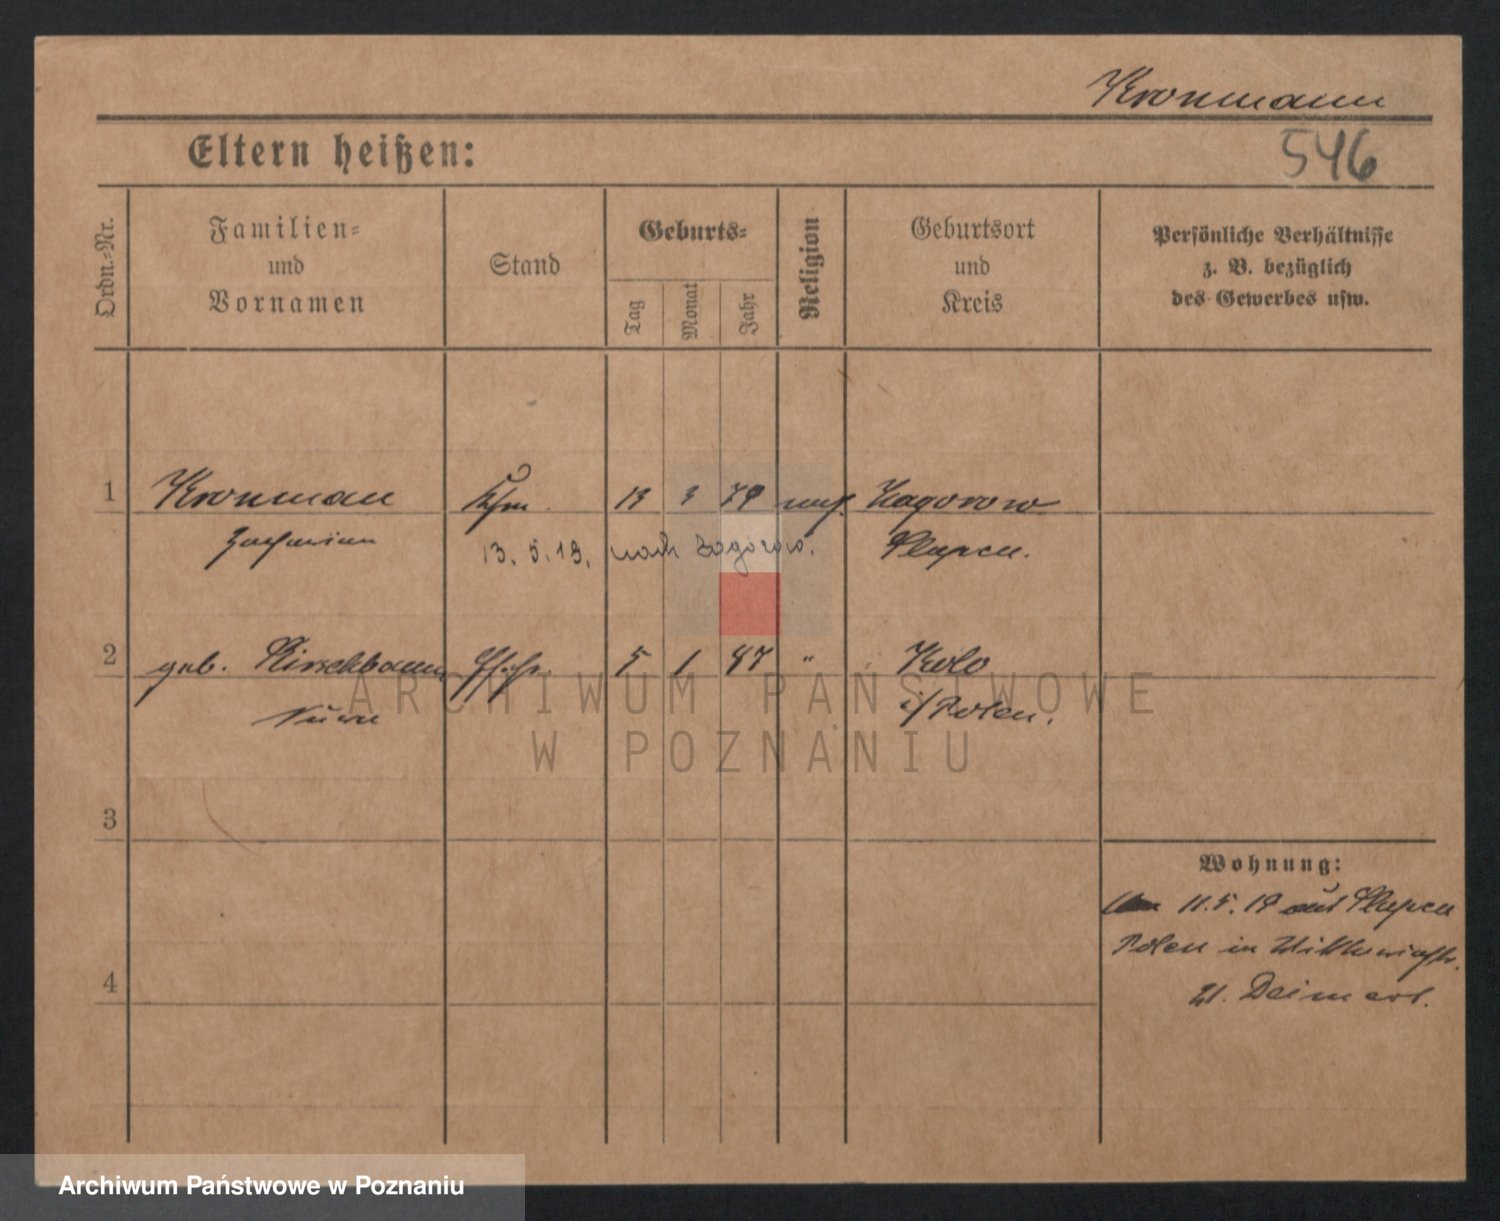 Kronmann
546
Eltern heißen:
Ordn.-Nr.
Familien-
und
Vornamen
Stand
Geburts-
Tag
Monat
Jahr
Religion
Geburtsort
und
Kreis
Persönliche Verhältnisse
z. B. bezüglich
des Gewerbes usw.
1 Kronman Kfm. 13 3 79 mos. Zagorow
13. 5. 19. nach Zagorow. Slupca.
2 geb. Hirschbaum 5 1 87 " Kolo
i/Polen.
3
4
Wohnung:
11.5.19 aus Slupca
Polen in
21.
ARCHIWUM PAŃSTWOWE
W POZNANIU
Archiwum Państwowe w Poznaniu